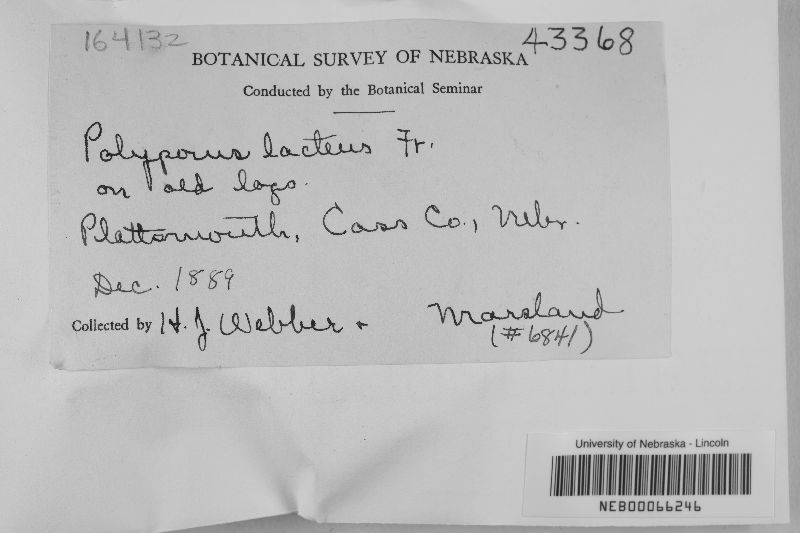 164132
43368
BOTANICAL SURVEY OF NEBRASKA
Conducted by the Botanical Seminar
Polyporus lacteus Fr.
on old logs.
Plattsmouth, Cass Co., Nebr.
Dec. 1889
Collected by H. J. Webber + Marsland
(#6841)
University of Nebraska - Lincoln
NEB00066246